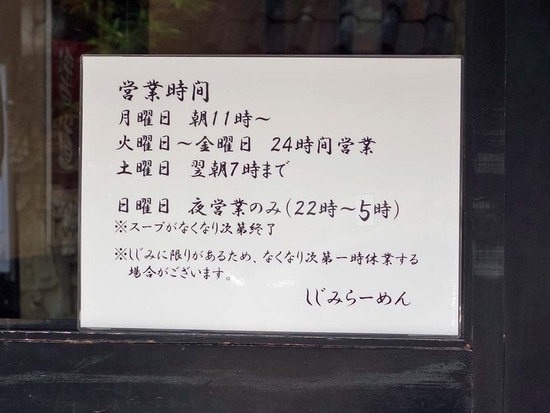 営業時間
月曜日 朝11時～
火曜日～金曜日 24時間営業
土曜日 翌朝7時まで
日曜日 夜営業のみ(22時～5時)
※スープがなくなり次第終了
※しじみに限りがあるため、なくなり次第一時休業する
場合がございます。
しじみらーめん